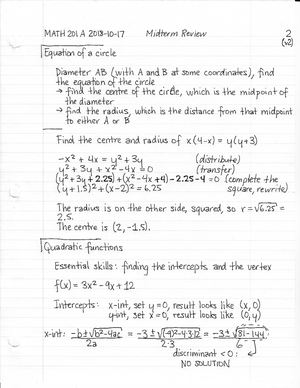 MATH 201A 2013-10-17 Midterm Review 2
(v2)
Equation of a circle
Diameter AB (with A and B at some coordinates), find
the equation of the circle
→ find the centre of the circle, which is the midpoint of
the diameter
→ find the radius, which is the distance from that midpoint
to either A or B
Find the centre and radius of x(4-x) = y(y+3)
-x² + 4x = y² + 3y (distribute)
y² + 3y + x² - 4x = 0 (transfer)
(y² + 3y + 2.25) + (x² - 4x + 4) - 2.25 - 4 = 0 (complete the
(y + 1.5)² + (x - 2)² = 6.25 square, rewrite)
The radius is on the other side, squared, so r = √6.25 =
2.5.
The centre is (2, -1.5).
Quadratic functions
Essential skills: finding the intercepts and the vertex
f(x) = 3x² - 9x + 12
Intercepts: x-int, set y = 0, result looks like (x, 0)
y-int, set x = 0, result looks like (0, y)
x-int: -b ± √b² - 4ac / 2a = -3 ± √(-9)² - 4·3·12 / 2·3 = -3 ± √81 - 144 / 6
discriminant < 0 ∴
NO SOLUTION